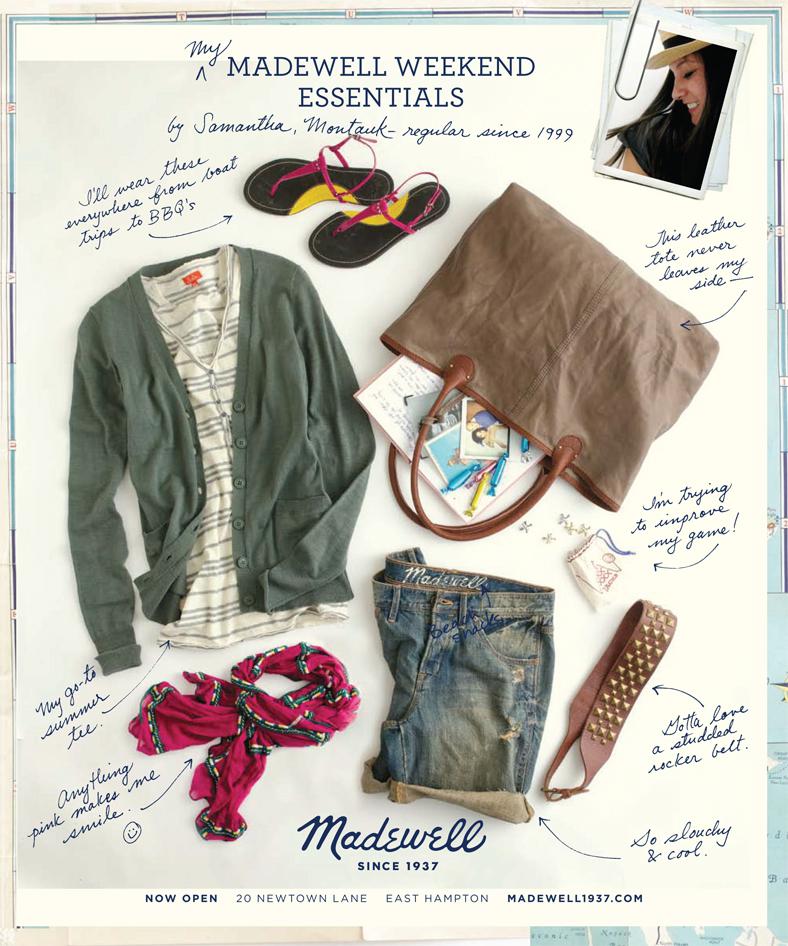 My
MADEWELL WEEKEND
ESSENTIALS
by Samantha, Montauk-regular since 1999
I'll wear these
everywhere from boat
trips to BBQ's
This leather
tote never
leaves my
side
I'm trying
to improve
my game!
Madewell
Beach
snacks
My go-to
summer
tee.
Gotta love
a studded
rocker belt.
Anything
pink makes me
smile.
So slouchy
& cool.
Madewell
SINCE 1937
NOW OPEN 20 NEWTOWN LANE EAST HAMPTON MADEWELL1937.COM